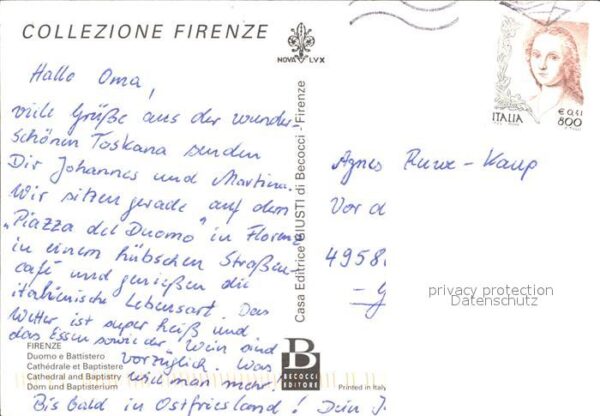 COLLEZIONE FIRENZE
NOVA LVX
Hallo Oma,
viele Grüße aus der wunder-
schönen Toskana senden
Dir Johannes und Martina.
Wir sitzen gerade auf dem
"Piazza del Duomo" in Florenz
in einem hübschen Straßen-
café und genießen die
italienische Lebensart. Das
Wetter ist super heiß und
das Essen sowie der Wein sind
vorzüglich. Was
will man mehr.
Bis bald in Ostfriesland! Dein J
FIRENZE
Duomo e Battistero
Cathédrale et Baptistere
Cathedral and Baptistry
Dom und Baptisterium
Casa Editrice GIUSTI di Becocci - Firenze
B
BECOCCI
EDITORE
Printed in Italy
ITALIA
€ 0,41
800
Agnes
Vor d
4958
privacy protection
Datenschutz